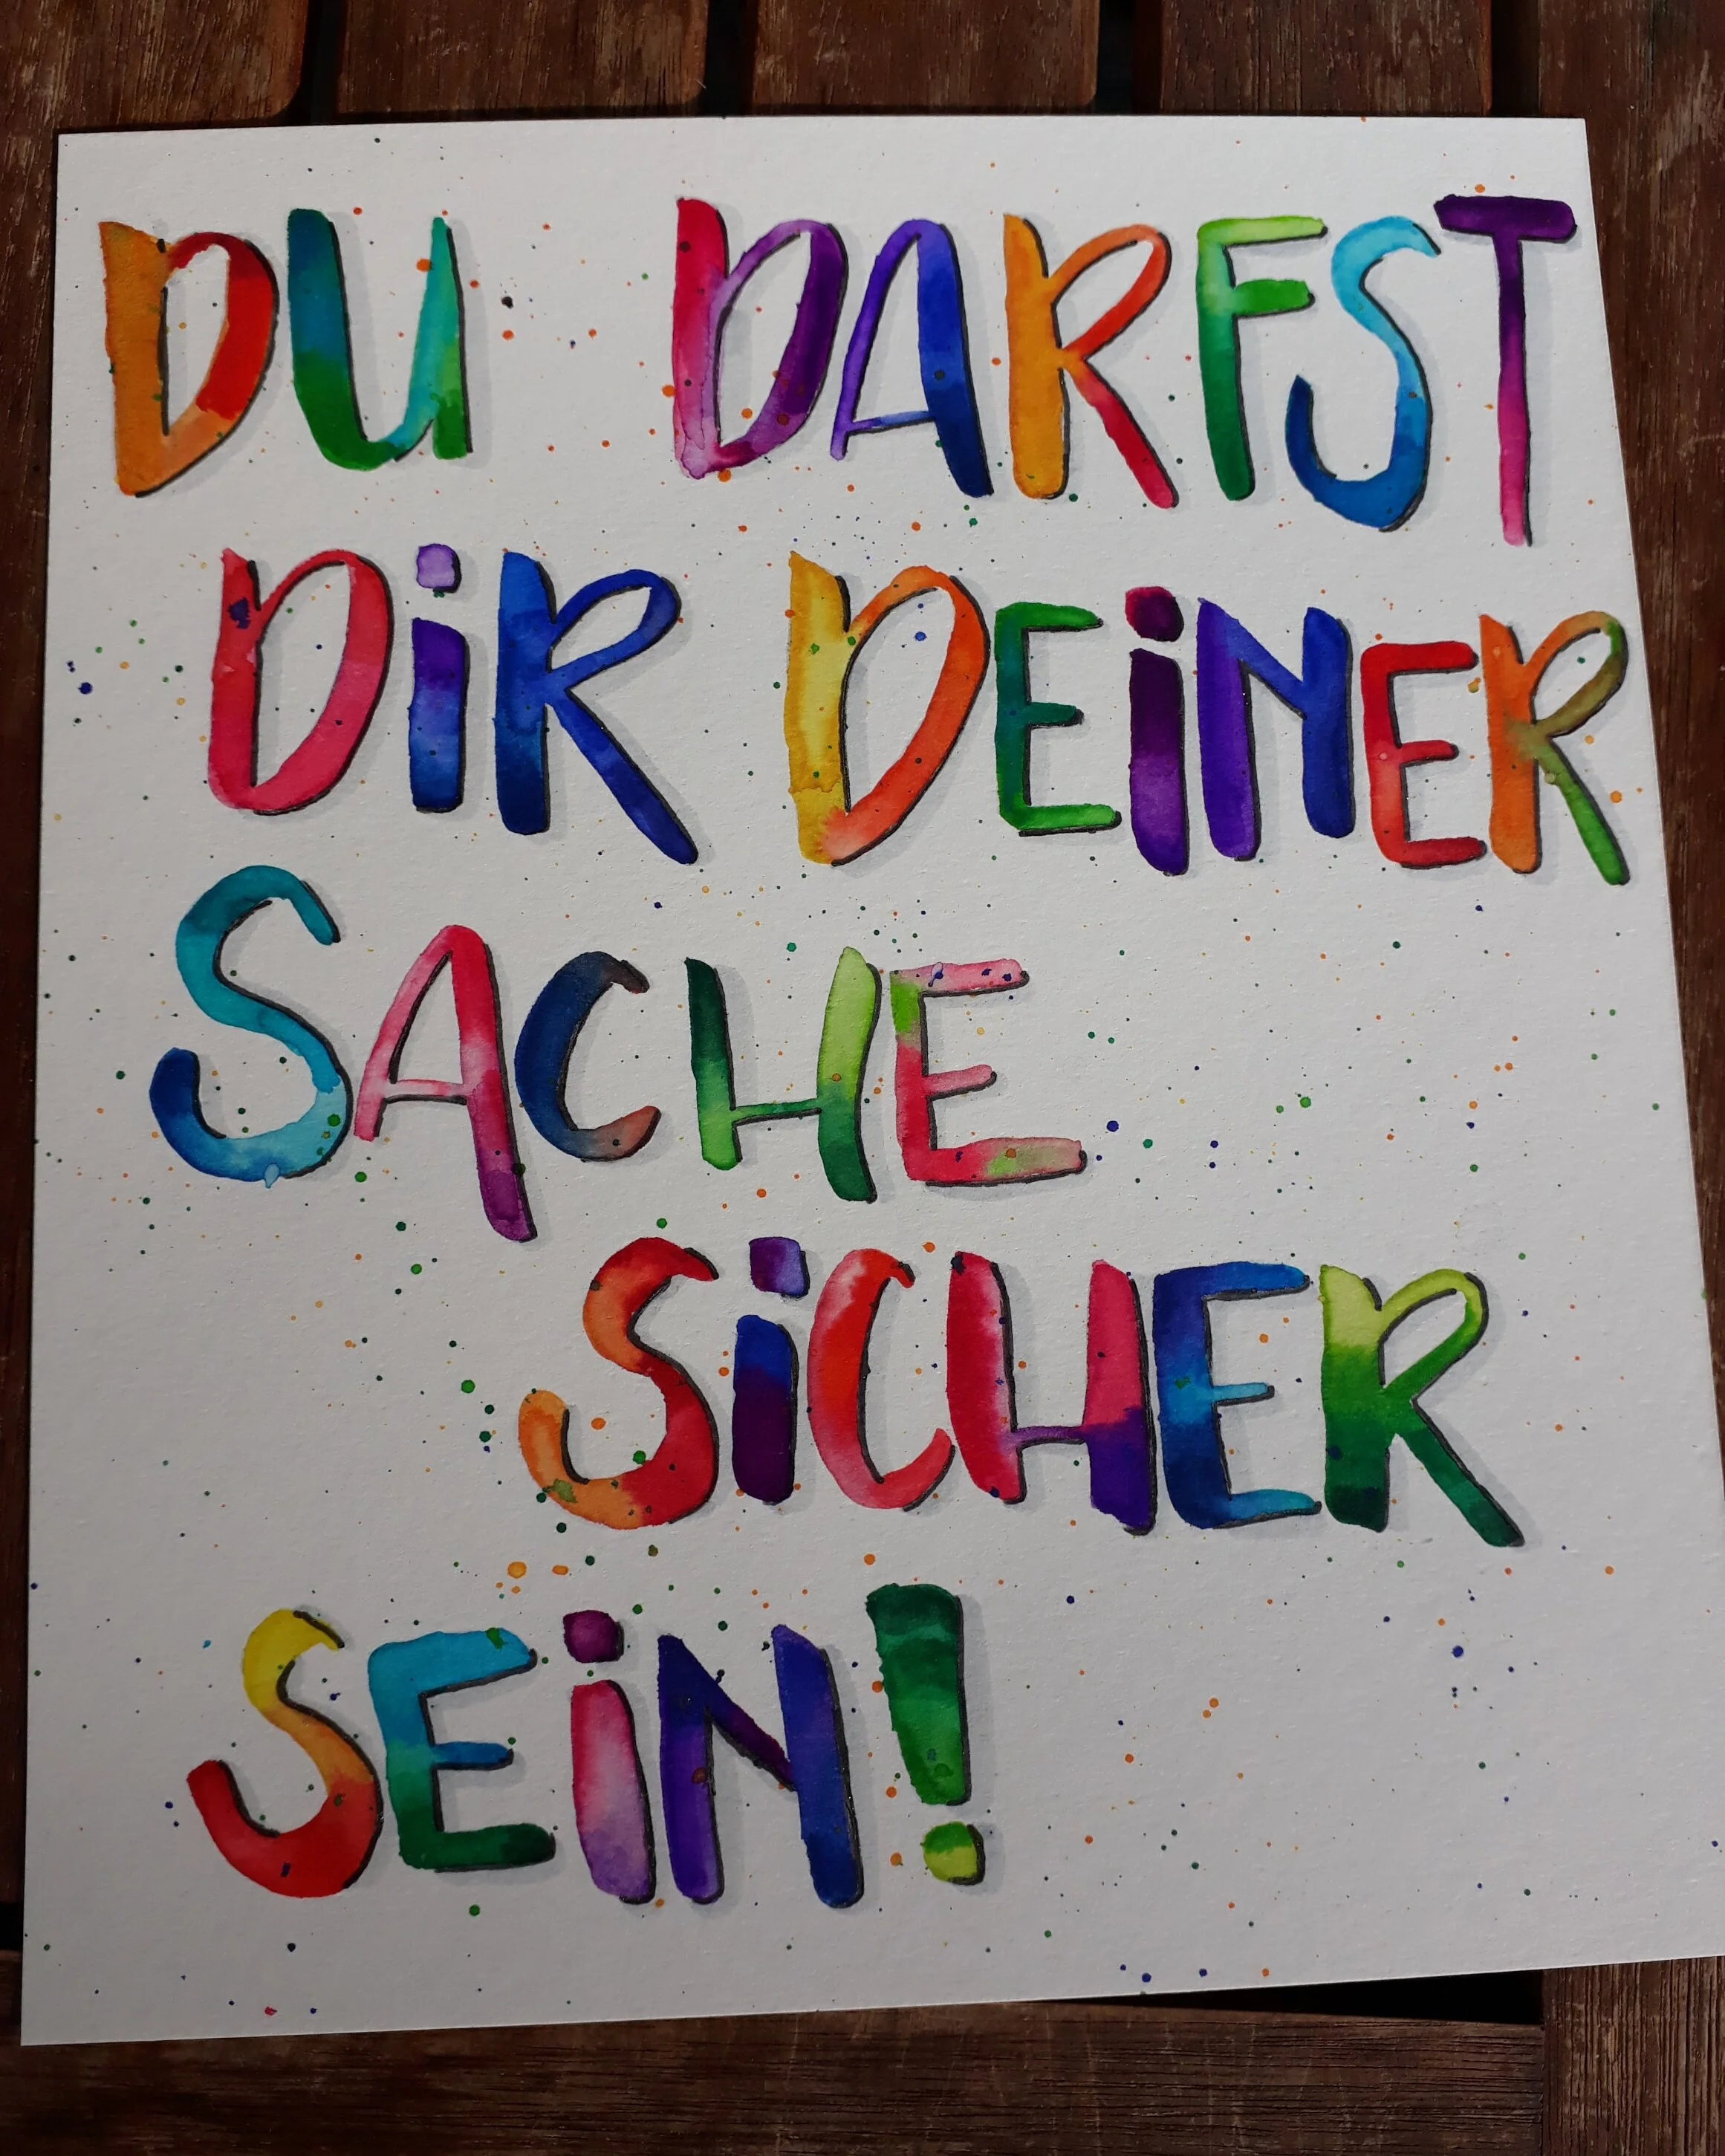 DU DARFST
DiR DEiNER
SACHE
SiCHER
SEiN!